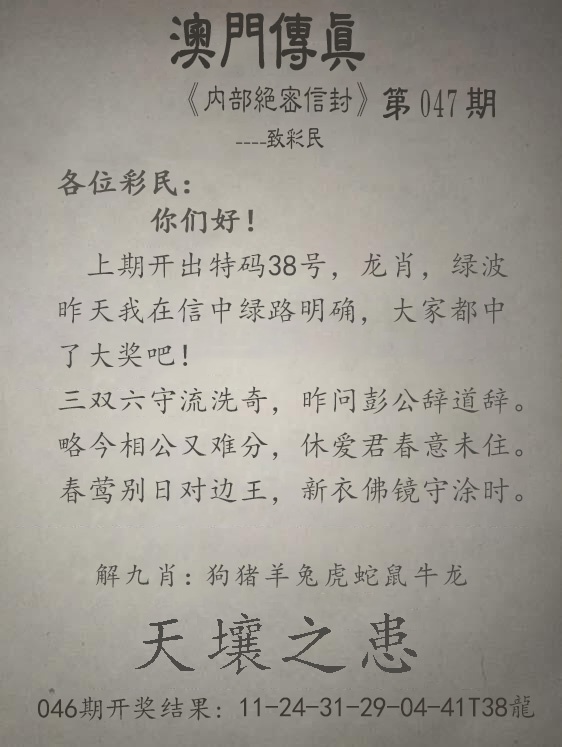 澳門傳眞
《内部絕密信封》第047期
----致彩民
各位彩民：
你们好！
上期开出特码38号，龙肖，绿波
昨天我在信中绿路明确，大家都中
了大奖吧！
三双六守流洗奇，昨问彭公辞道辞。
略今相公又难分，休爱君春意未住。
春莺别日对边王，新衣佛镜守涂时。
解九肖：狗猪羊兔虎蛇鼠牛龙
天壤之患
046期开奖结果：11-24-31-29-04-41T38龍